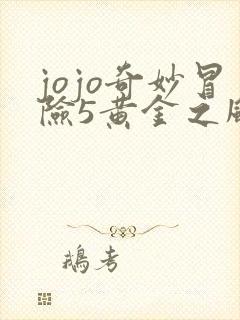 jojo奇妙冒
險5黄金之風
鵝考